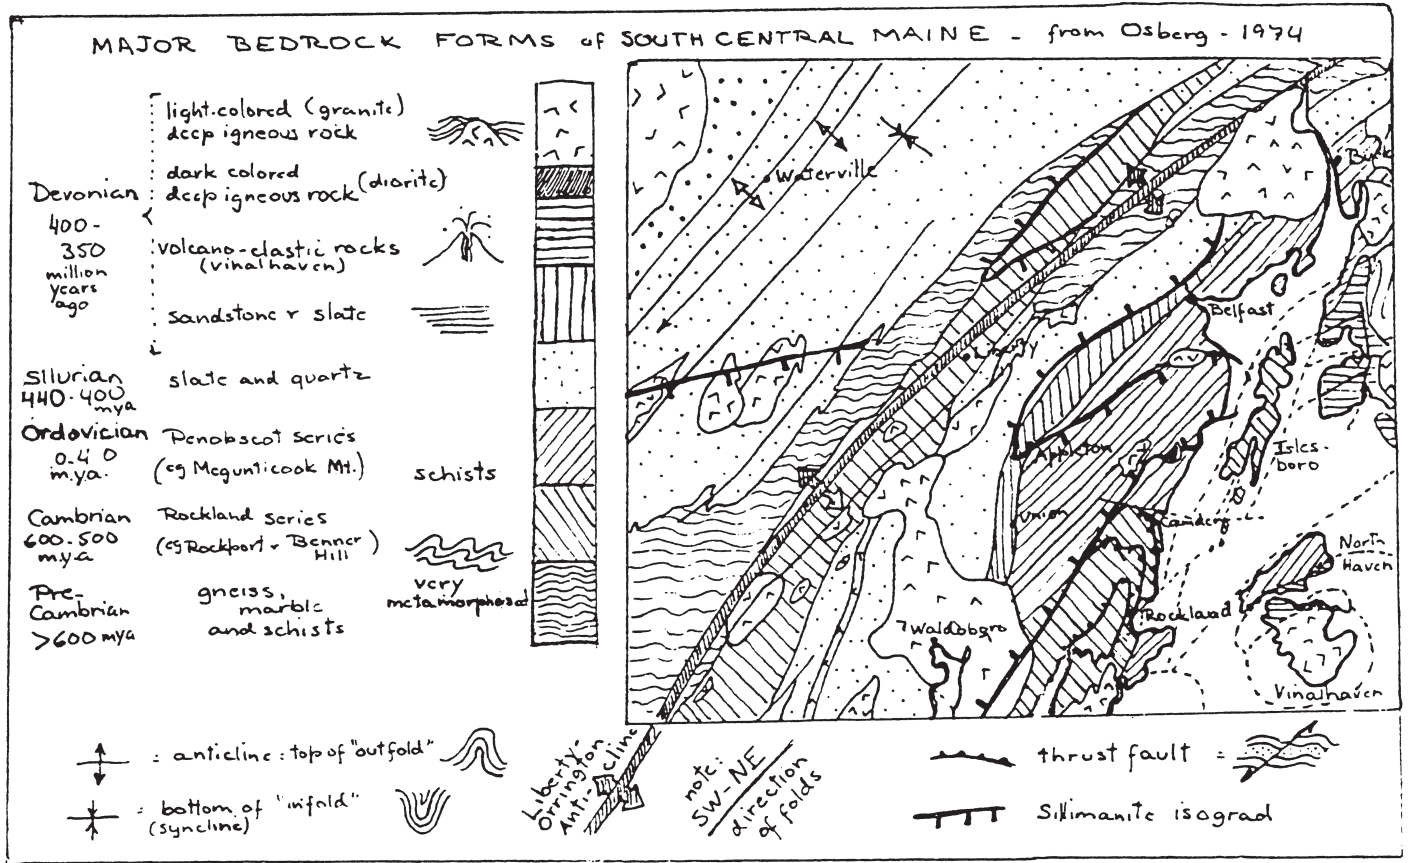 MAJOR BEDROCK FORMS of SOUTH CENTRAL MAINE - from Osberg - 1974
Devonian
400-
350
million
years
ago
light-colored (granite)
deep igneous rock
dark colored
deep igneous rock (diorite)
volcano-clastic rocks
(vinalhaven)
sandstone & slate
Silurian
440-400
mya
slate and quartz
Ordovician
m.y.a.
Penobscot series
(eg Megunticook Mt.)
schists
Cambrian
600-500
m.y.a
Rockland series
(eg Rockport & Benner
Hill)
very
metamorphosed
Pre-
Cambrian
>600 mya
gneiss,
marble
and schists
Waterville
Buck
Belfast
Liberty
Appleton
Isles-
boro
Union
Camden
North
Haven
Rockland
Waldoboro
Vinalhaven
= anticline: top of "outfold"
= bottom of "infold"
(syncline)
Liberty-
Orrington
Anti-cline
note:
SW-NE
direction
of folds
thrust fault =
Sillimanite isograd